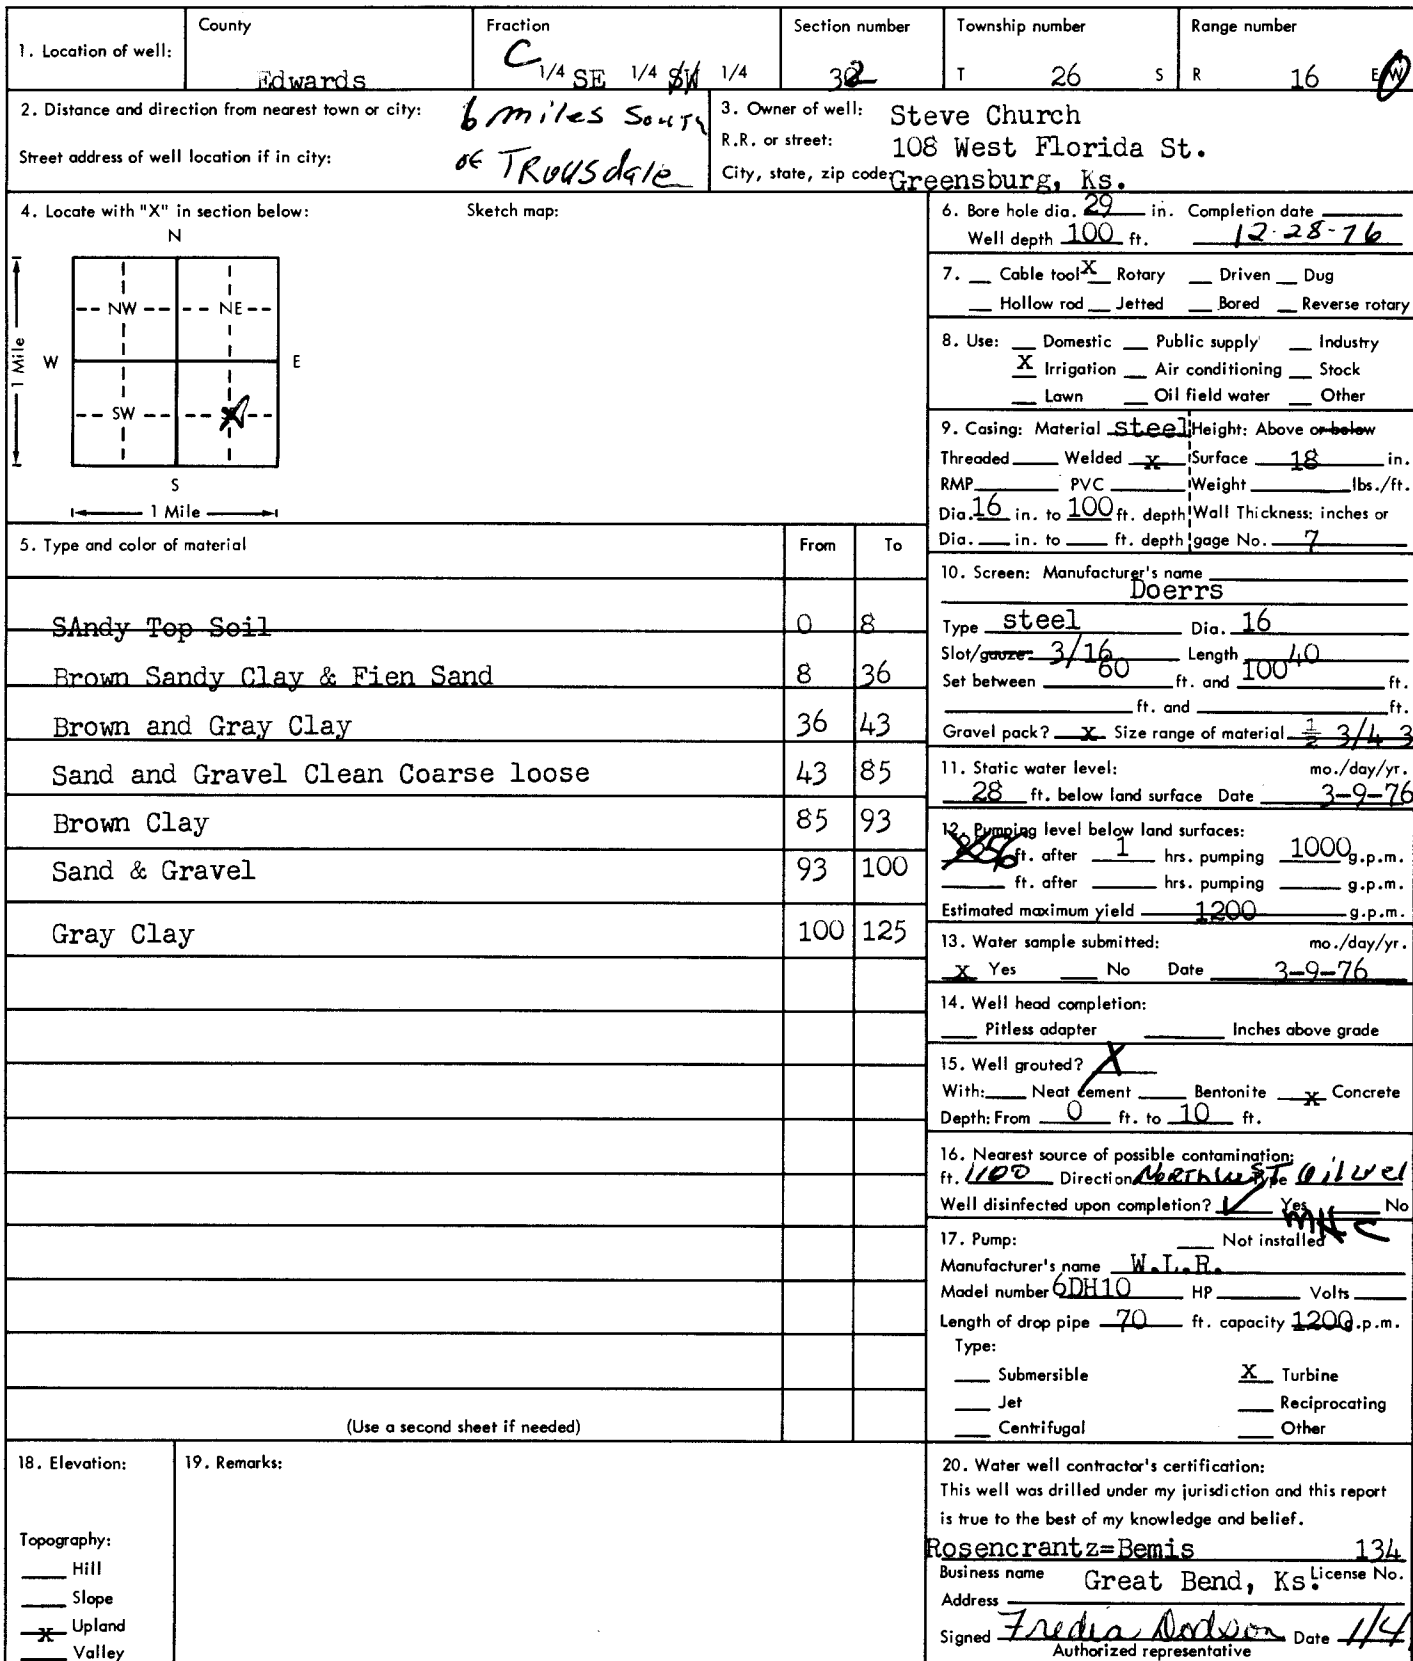 1. Location of well: County Fraction Section number Township number Range number
Edwards C 1/4 SE 1/4 1/4 T 26 S R 16 E W
2. Distance and direction from nearest town or city: 6 miles South
of Trousdale
Street address of well location if in city:
3. Owner of well: Steve Church
R.R. or street: 108 West Florida St.
City, state, zip code: Greensburg, Ks.
4. Locate with "X" in section below: Sketch map:
N
NW NE
W E
1 Mile
SW
S
1 Mile
5. Type and color of material From To
SAndy Top Soil 0 8
Brown Sandy Clay & Fien Sand 8 36
Brown and Gray Clay 36 43
Sand and Gravel Clean Coarse loose 43 85
Brown Clay 85 93
Sand & Gravel 93 100
Gray Clay 100 125
(Use a second sheet if needed)
6. Bore hole dia. 29 in. Completion date
Well depth 100 ft. 12-28-76
7. Cable tool X Rotary Driven Dug
Hollow rod Jetted Bored Reverse rotary
8. Use: Domestic Public supply Industry
X Irrigation Air conditioning Stock
Lawn Oil field water Other
9. Casing: Material steel Height: Above or below
Threaded Welded x Surface 18 in.
RMP PVC Weight lbs./ft.
Dia. 16 in. to 100 ft. depth Wall Thickness: inches or
Dia. in. to ft. depth gage No. 7
10. Screen: Manufacturer's name
Doerrs
Type steel Dia. 16
Slot/gauze 3/16 Length 40
Set between 60 ft. and 100 ft.
ft. and ft.
Gravel pack? x Size range of material 1/2 3/4 3
11. Static water level: mo./day/yr.
28 ft. below land surface Date 3-9-76
12. Pumping level below land surfaces:
ft. after 1 hrs. pumping 1000 g.p.m.
ft. after hrs. pumping g.p.m.
Estimated maximum yield 1200 g.p.m.
13. Water sample submitted: mo./day/yr.
x Yes No Date 3-9-76
14. Well head completion:
Pitless adapter Inches above grade
15. Well grouted? X
With: Neat cement Bentonite x Concrete
Depth: From 0 ft. to 10 ft.
16. Nearest source of possible contamination:
ft. 1100 Direction Northwest Type Oil Well
Well disinfected upon completion? ✓ Yes No
MHC
17. Pump: Not installed
Manufacturer's name W.L.R.
Model number 6DH10 HP Volts
Length of drop pipe 70 ft. capacity 1200 g.p.m.
Type:
Submersible X Turbine
Jet Reciprocating
Centrifugal Other
18. Elevation:
Topography:
Hill
Slope
x Upland
Valley
19. Remarks:
20. Water well contractor's certification:
This well was drilled under my jurisdiction and this report
is true to the best of my knowledge and belief.
Rosencrantz=Bemis 134
Business name License No.
Address Great Bend, Ks.
Signed Fredia Dodson Date 1/4
Authorized representative